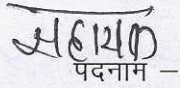 सहायक
पदनाम –